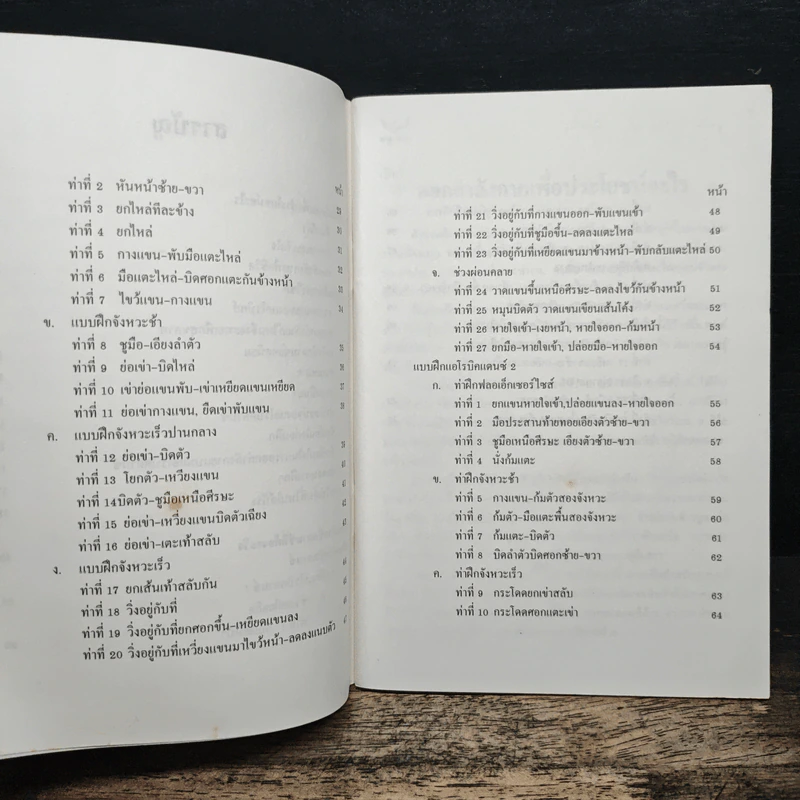 สารบัญ
หน้า
ท่าที่ 2 หันหน้าซ้าย-ขวา 29
ท่าที่ 3 ยกไหล่ทีละข้าง 30
ท่าที่ 4 ยกไหล่ 31
ท่าที่ 5 กางแขน-พับมือแตะไหล่ 32
ท่าที่ 6 มือแตะไหล่-บิดศอกแตะกันข้างหน้า 33
ท่าที่ 7 ไขว้แขน-กางแขน 34
ข. แบบฝึกจังหวะช้า
ท่าที่ 8 ชูมือ-เอียงลำตัว 35
ท่าที่ 9 ย่อเข่า-บิดไหล่ 36
ท่าที่ 10 เข่าย่อแขนพับ-เข่าเหยียดแขนเหยียด 37
ท่าที่ 11 ย่อเข่ากางแขน, ยืดเข่าพับแขน 38
ค. แบบฝึกจังหวะเร็วปานกลาง
ท่าที่ 12 ย่อเข่า-บิดตัว 39
ท่าที่ 13 โยกตัว-เหวี่ยงแขน 40
ท่าที่ 14บิดตัว-ชูมือเหนือศีรษะ 41
ท่าที่ 15 ย่อเข่า-เหวี่ยงแขนบิดตัวเฉียง 42
ท่าที่ 16 ย่อเข่า-เตะเท้าสลับ 43
ง. แบบฝึกจังหวะเร็ว
ท่าที่ 17 ยกเส้นเท้าสลับกัน
ท่าที่ 18 วิ่งอยู่กับที่
ท่าที่ 19 วิ่งอยู่กับที่ยกศอกขึ้น-เหยียดแขนลง
ท่าที่ 20 วิ่งอยู่กับที่เหวี่ยงแขนมาไขว้หน้า-ลดลงแนบตัว
หน้า
ท่าที่ 21 วิ่งอยู่กับที่กางแขนออก-พับแขนเข้า 48
ท่าที่ 22 วิ่งอยู่กับที่ชูมือขึ้น-ลดลงแตะไหล่ 49
ท่าที่ 23 วิ่งอยู่กับที่เหยียดแขนมาข้างหน้า-พับกลับแตะไหล่ 50
จ. ช่วงผ่อนคลาย
ท่าที่ 24 วาดแขนขึ้นเหนือศีรษะ-ลดลงไขว้กันข้างหน้า 51
ท่าที่ 25 หมุนบิดตัว วาดแขนเขียนเส้นโค้ง 52
ท่าที่ 26 หายใจเข้า-เงยหน้า, หายใจออก-ก้มหน้า 53
ท่าที่ 27 ยกมือ-หายใจเข้า, ปล่อยมือ-หายใจออก 54
แบบฝึกแอโรบิคแดนซ์ 2
ก. ท่าฝึกฟลอเอ็กเซอร์ไซส์
ท่าที่ 1 ยกแขนหายใจเข้า,ปล่อยแขนลง-หายใจออก 55
ท่าที่ 2 มือประสานท้ายทอยเอียงตัวซ้าย-ขวา 56
ท่าที่ 3 ชูมือเหนือศีรษะ เอียงตัวซ้าย-ขวา 57
ท่าที่ 4 นั่งก้มแตะ 58
ข. ท่าฝึกจังหวะช้า
ท่าที่ 5 กางแขน-ก้มตัวสองจังหวะ 59
ท่าที่ 6 ก้มตัว-มือแตะพื้นสองจังหวะ 60
ท่าที่ 7 ก้มแตะ-บิดตัว 61
ท่าที่ 8 บิดลำตัวบิดศอกซ้าย-ขวา 62
ค. ท่าฝึกจังหวะเร็ว
ท่าที่ 9 กระโดดยกเข่าสลับ 63
ท่าที่ 10 กระโดดศอกแตะเข่า 64